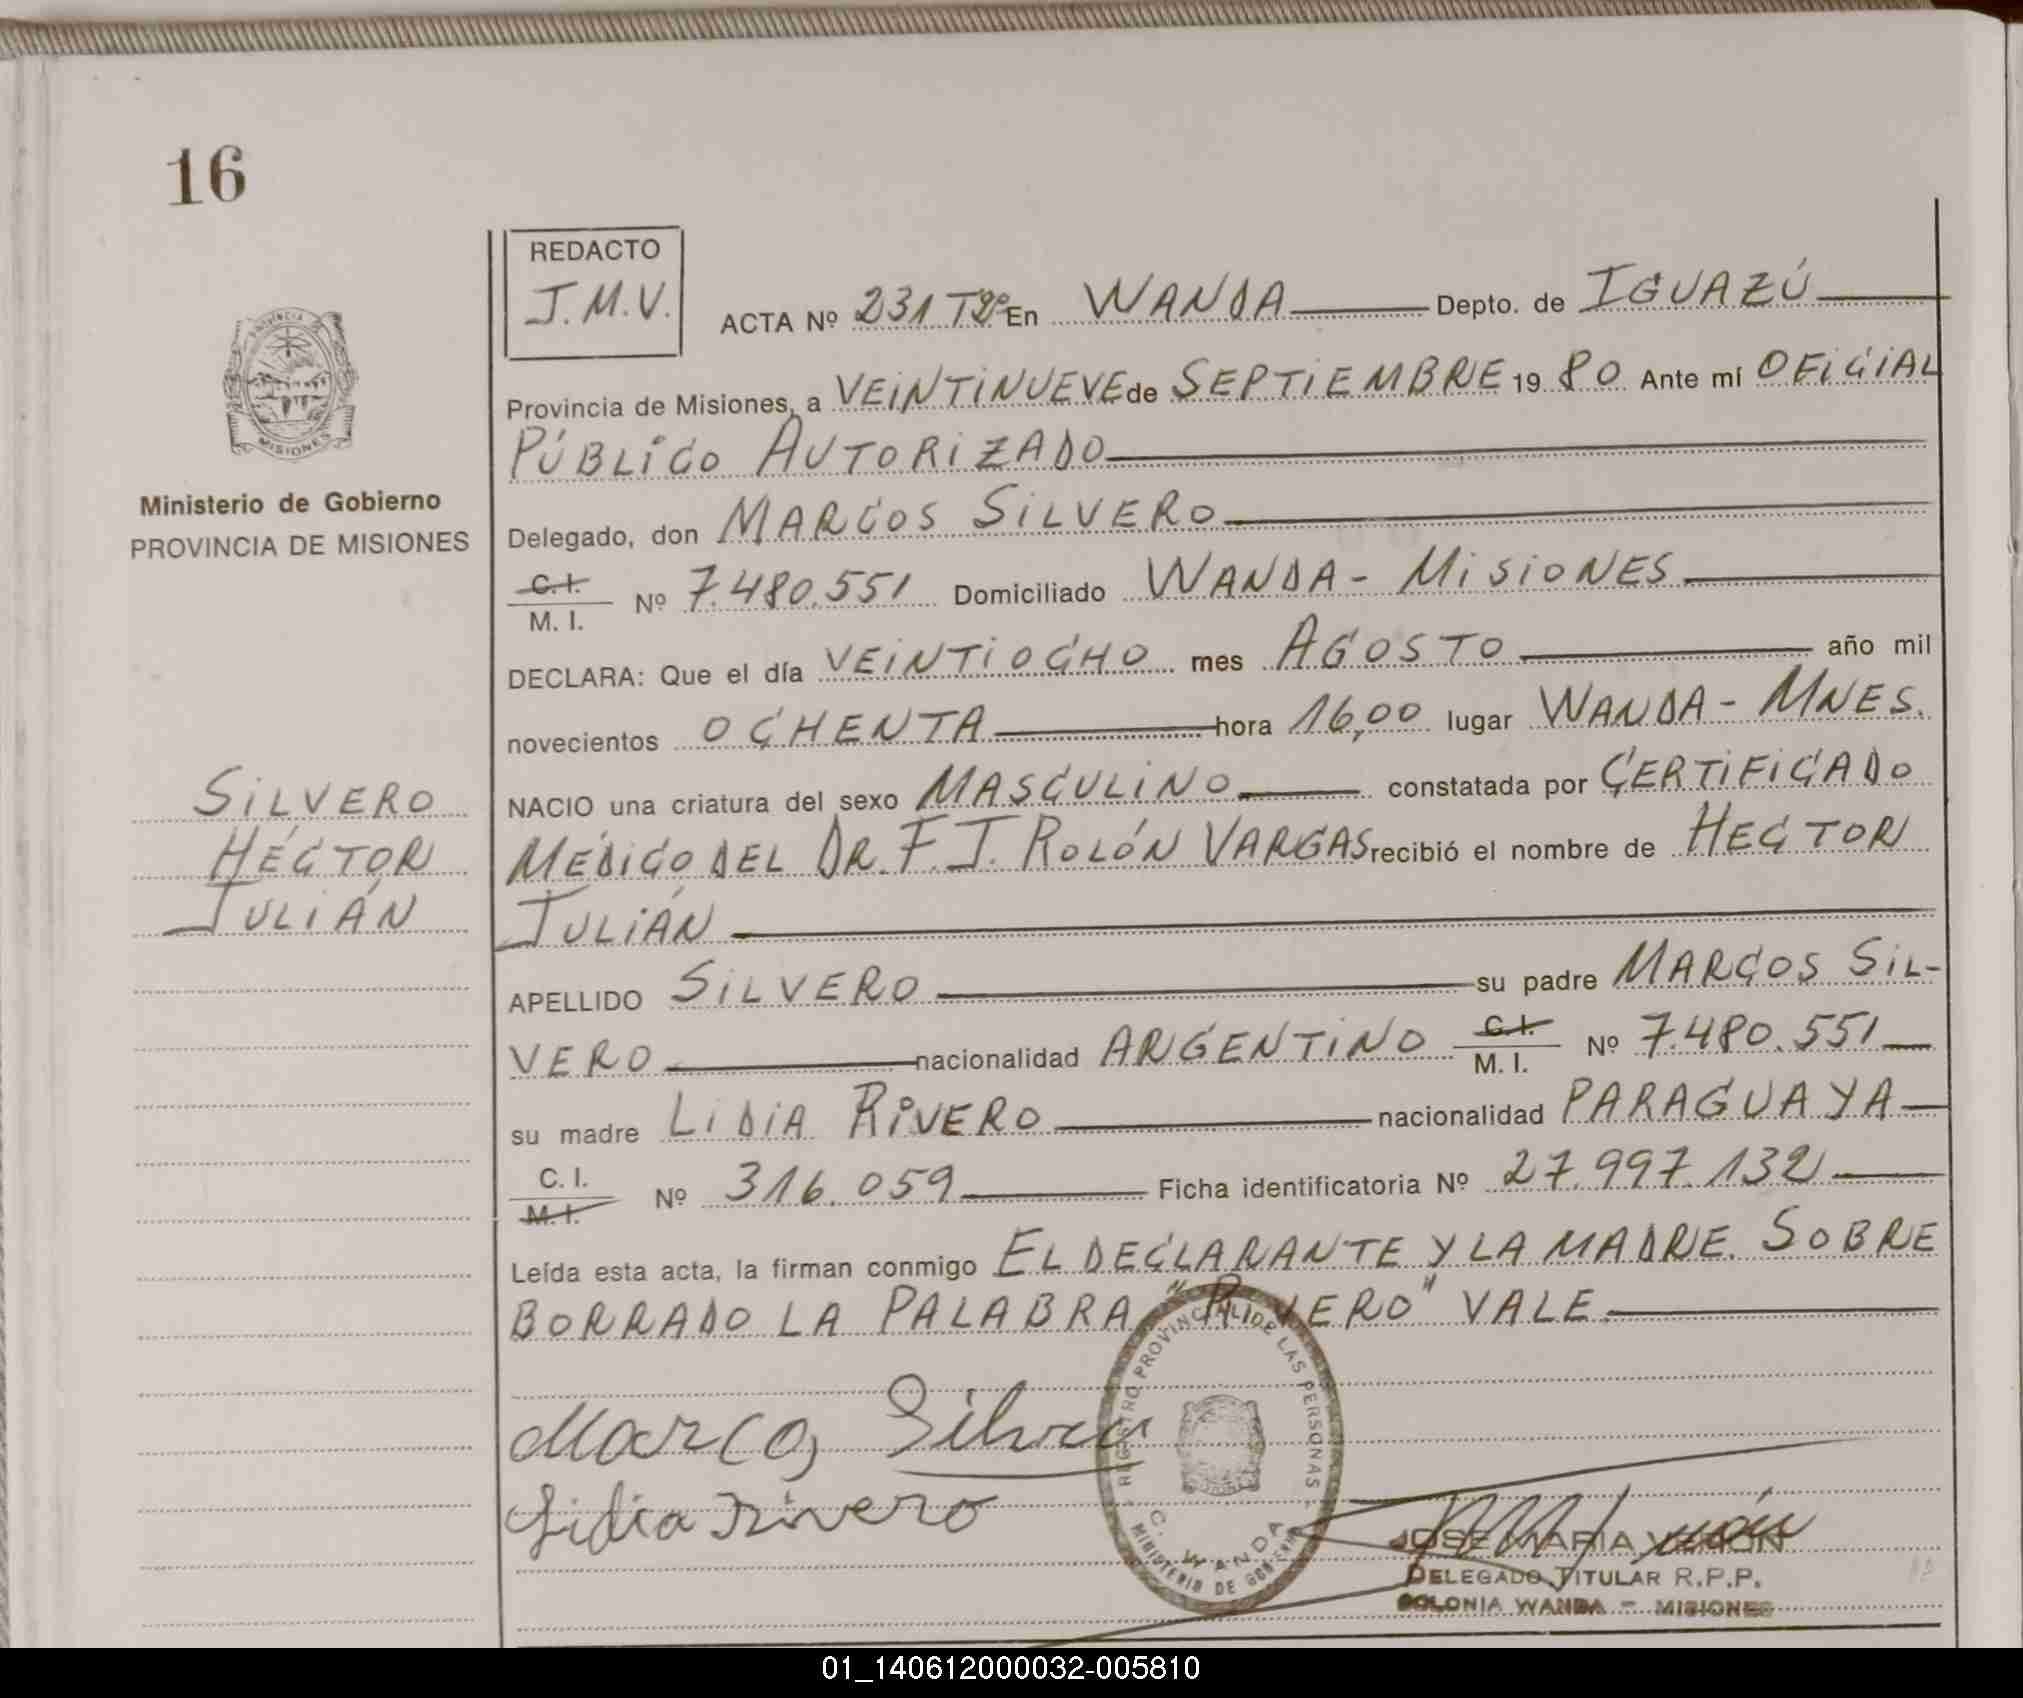 16
REDACTO
J.M.V.
ACTA Nº 231 Tº2º En WANDA Depto. de IGUAZÚ
Provincia de Misiones, a VEINTINUEVE de SEPTIEMBRE 1980 Ante mí OFICIAL
PÚBLICO AUTORIZADO
Delegado, don MARCOS SILVERO
C.I.
M. I. Nº 7.480.551 Domiciliado WANDA - MISIONES
DECLARA: Que el día VEINTIOCHO mes AGOSTO año mil
novecientos OCHENTA hora 16,00 lugar WANDA - MNES.
NACIO una criatura del sexo MASCULINO constatada por CERTIFICADO
MÉDICO DEL DR. F. J. ROLÓN VARGAS recibió el nombre de HECTOR
JULIÁN
APELLIDO SILVERO su padre MARCOS SIL-
VERO nacionalidad ARGENTINO C.I. M. I. Nº 7.480.551
su madre LIDIA RIVERO nacionalidad PARAGUAYA
C. I.
M.I. Nº 316.059 Ficha identificatoria Nº 27.997.132
Leída esta acta, la firman conmigo EL DECLARANTE Y LA MADRE. SOBRE
BORRADO LA PALABRA "RIVERO" VALE.
PROVINCIA DE
MISIONES
Ministerio de Gobierno
PROVINCIA DE MISIONES
SILVERO
HÉCTOR
JULIÁN
Marcos Silvero
Lidia Rivero
REGISTRO PROVINCIAL DE LAS PERSONAS
C. WANDA
MINISTERIO DE GOBIERNO
JOSE MARIA
DELEGADO TITULAR R.P.P.
COLONIA WANDA - MISIONES
01_140612000032-005810